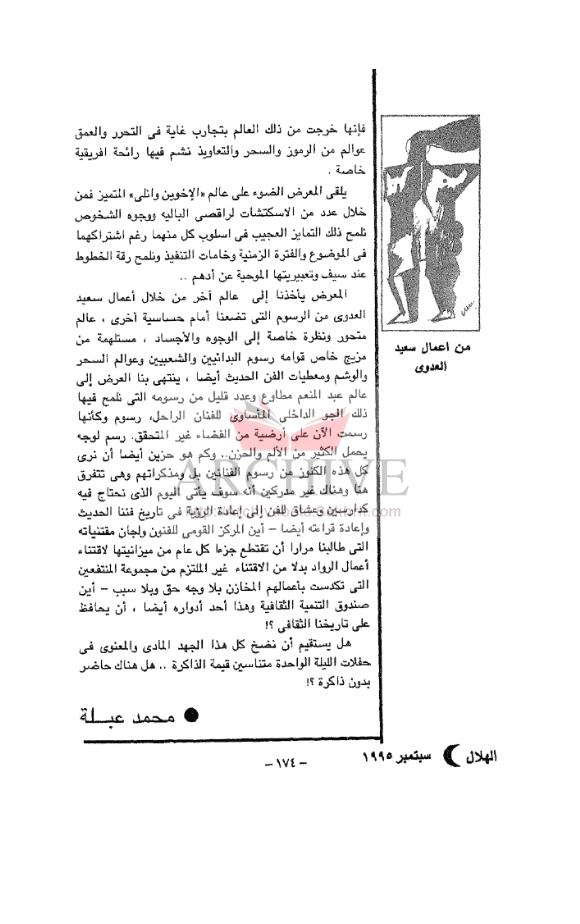 فإنها خرجت من ذلك العالم بتجارب غاية فى التحرر والعمق
عوالم من الرموز والسحر والتعاويذ نشم فيها رائحة افريقية
خاصة .
يلقى المعرض الضوء على عالم «الإخوين وانلى» المتميز فمن
خلال عدد من الاسكتشات لراقصى الباليه ووجوه الشخوص
نلمح ذلك التمايز العجيب فى اسلوب كل منهما رغم اشتراكهما
فى الموضوع والفترة الزمنية وخامات التنفيذ ونلمح رقة الخطوط
عند سيف وتعبيريتها الموحية عن أدهم ..
المعرض يأخذنا إلى عالم آخر من خلال أعمال سعيد
العدوى من الرسوم التى تضعنا أمام حساسية أخرى ، عالم
متحور ونظرة خاصة إلى الوجوه والأجساد ، مستلهمة من
مزيج خاص قوامه رسوم البدائيين والشعبيين وعوالم السحر
والوشم ومعطيات الفن الحديث أيضا ، ينتهى بنا العرض إلى
عالم عبد المنعم مطاوع وعدد قليل من رسومه التى نلمح فيها
ذلك الجو الداخلى المأساوى للفنان الراحل، رسوم وكأنها
رسمت الآن على أرضية من الفضاء غير المتحقق. رسم لوجه
يحمل الكثير من الألم والحزن.. وكم هو حزين أيضا أن نرى
كل هذه الكنوز من رسوم الفنانين بل ومذكراتهم وهى تتفرق
هنا وهناك غير مدركين أنه سوف يأتى اليوم الذى نحتاج فيه
كدارسين وعشاق للفن إلى إعادة الرؤية فى تاريخ فننا الحديث
وإعادة قراءته أيضا – أين المركز القومى للفنون ولجان مقتنياته
التى طالبنا مرارا أن تقتطع جزءا كل عام من ميزانيتها لاقتناء
أعمال الرواد بدلا من الاقتناء غير الملتزم من مجموعة المنتفعين
التى تكدست بأعمالهم المخازن بلا وجه حق وبلا سبب – أين
صندوق التنمية الثقافية وهذا أحد أدواره أيضا ، أن يحافظ
على تاريخنا الثقافى ؟!
هل يستقيم أن نضخ كل هذا الجهد المادى والمعنوى فى
حفلات الليلة الواحدة متناسين قيمة الذاكرة .. هل هناك حاضر
بدون ذاكرة ؟!
● محمد عبلة
من اعمال سعيد
العدوى
الهلال سبتمبر ١٩٩٥
– ١٧٤ –
ARCHIVE